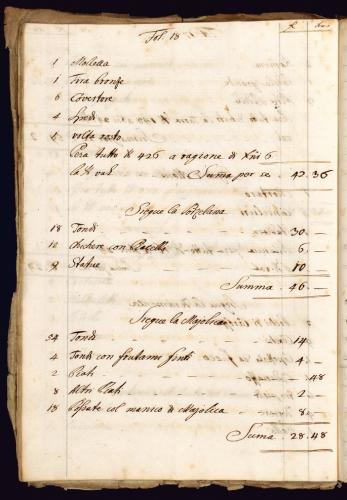 Fol. 18
1 Molletta
1 Tira bronze
6 Covertore
4 Spedi
1 volta rosto
Pesa tutto ℔ 426 a ragione di Xni 6
la ℔ val Suma per se 42.36
Siegue la Porcelana
18 Tondi 30. —
12 Chichere con Piatelli 6. —
9 Statue 10 —
Summa 46 —
Siegue la Majolica
54 Tondi 14
4 Tondi con frutame finti 4. —
2 Piati — .48
8 Altri Piati 2. —
18 Possate col manico di Majolica 8 —
Suma 28.48